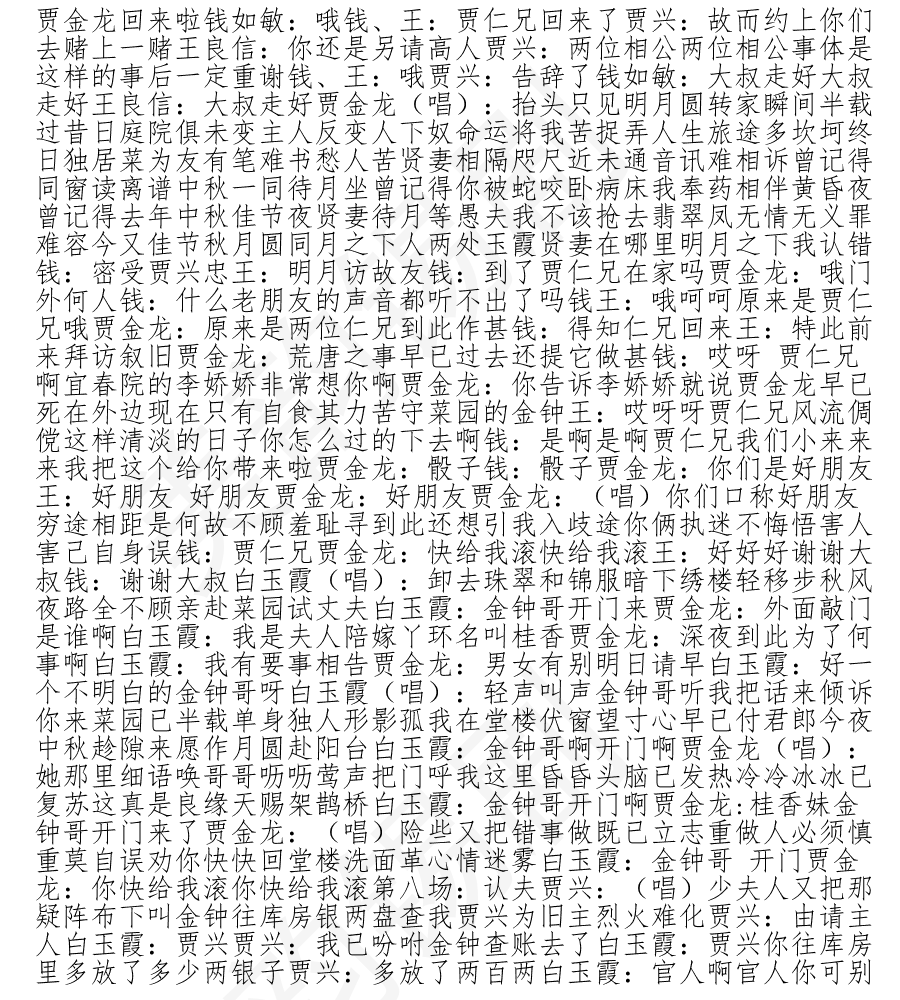 贾金龙回来啦钱如敏：哦钱、王：贾仁兄回来了贾兴：故而约上你们
去赌上一赌王良信：你还是另请高人贾兴：两位相公两位相公事体是
这样的事后一定重谢钱、王：哦贾兴：告辞了钱如敏：大叔走好大叔
走好王良信：大叔走好贾金龙（唱）：抬头只见明月圆转家瞬间半载
过昔日庭院俱未变主人反变人下奴命运将我苦捉弄人生旅途多坎坷终
日独居菜为友有笔难书愁人苦贤妻相隔咫尺近未通音讯难相诉曾记得
同窗读离谱中秋一同待月坐曾记得你被蛇咬卧病床我奉药相伴黄昏夜
曾记得去年中秋佳节夜贤妻待月等愚夫我不该抢去翡翠凤无情无义罪
难容今又佳节秋月圆同月之下人两处玉霞贤妻在哪里明月之下我认错
钱：密受贾兴忠王：明月访故友钱：到了贾仁兄在家吗贾金龙：哦门
外何人钱：什么老朋友的声音都听不出了吗钱王：哦呵呵原来是贾仁
兄哦贾金龙：原来是两位仁兄到此作甚钱：得知仁兄回来王：特此前
来拜访叙旧贾金龙：荒唐之事早已过去还提它做甚钱：哎呀 贾仁兄
啊宜春院的李娇娇非常想你啊贾金龙：你告诉李娇娇就说贾金龙早已
死在外边现在只有自食其力苦守菜园的金钟王：哎呀呀贾仁兄风流倜
傥这样清淡的日子你怎么过的下去啊钱：是啊是啊贾仁兄我们小来来
来我把这个给你带来啦贾金龙：骰子钱：骰子贾金龙：你们是好朋友
王：好朋友 好朋友贾金龙：好朋友贾金龙：（唱）你们口称好朋友
穷途相距是何故不顾羞耻寻到此还想引我入歧途你俩执迷不悔悟害人
害己自身误钱：贾仁兄贾金龙：快给我滚快给我滚王：好好好谢谢大
叔钱：谢谢大叔白玉霞（唱）：卸去珠翠和锦服暗下绣楼轻移步秋风
夜路全不顾亲赴菜园试丈夫白玉霞：金钟哥开门来贾金龙：外面敲门
是谁啊白玉霞：我是夫人陪嫁丫环名叫桂香贾金龙：深夜到此为了何
事啊白玉霞：我有要事相告贾金龙：男女有别明日请早白玉霞：好一
个不明白的金钟哥呀白玉霞（唱）：轻声叫声金钟哥听我把话来倾诉
你来菜园已半载单身独人形影孤我在堂楼伏窗望寸心早已付君郎今夜
中秋趁隙来愿作月圆赴阳台白玉霞：金钟哥啊开门啊贾金龙（唱）：
她那里细语唤哥哥呖呖莺声把门呼我这里昏昏头脑已发热冷冷冰冰已
复苏这真是良缘天赐架鹊桥白玉霞：金钟哥开门啊贾金龙:桂香妹金
钟哥开门来了贾金龙：（唱）险些又把错事做既已立志重做人必须慎
重莫自误劝你快快回堂楼洗面革心情迷雾白玉霞：金钟哥 开门贾金
龙：你快给我滚你快给我滚第八场:认夫贾兴：（唱）少夫人又把那
疑阵布下叫金钟往库房银两盘查我贾兴为旧主烈火难化贾兴：由请主
人白玉霞：贾兴贾兴：我已吩咐金钟查账去了白玉霞：贾兴你往库房
里多放了多少两银子贾兴：多放了两百两白玉霞：官人啊官人你可别